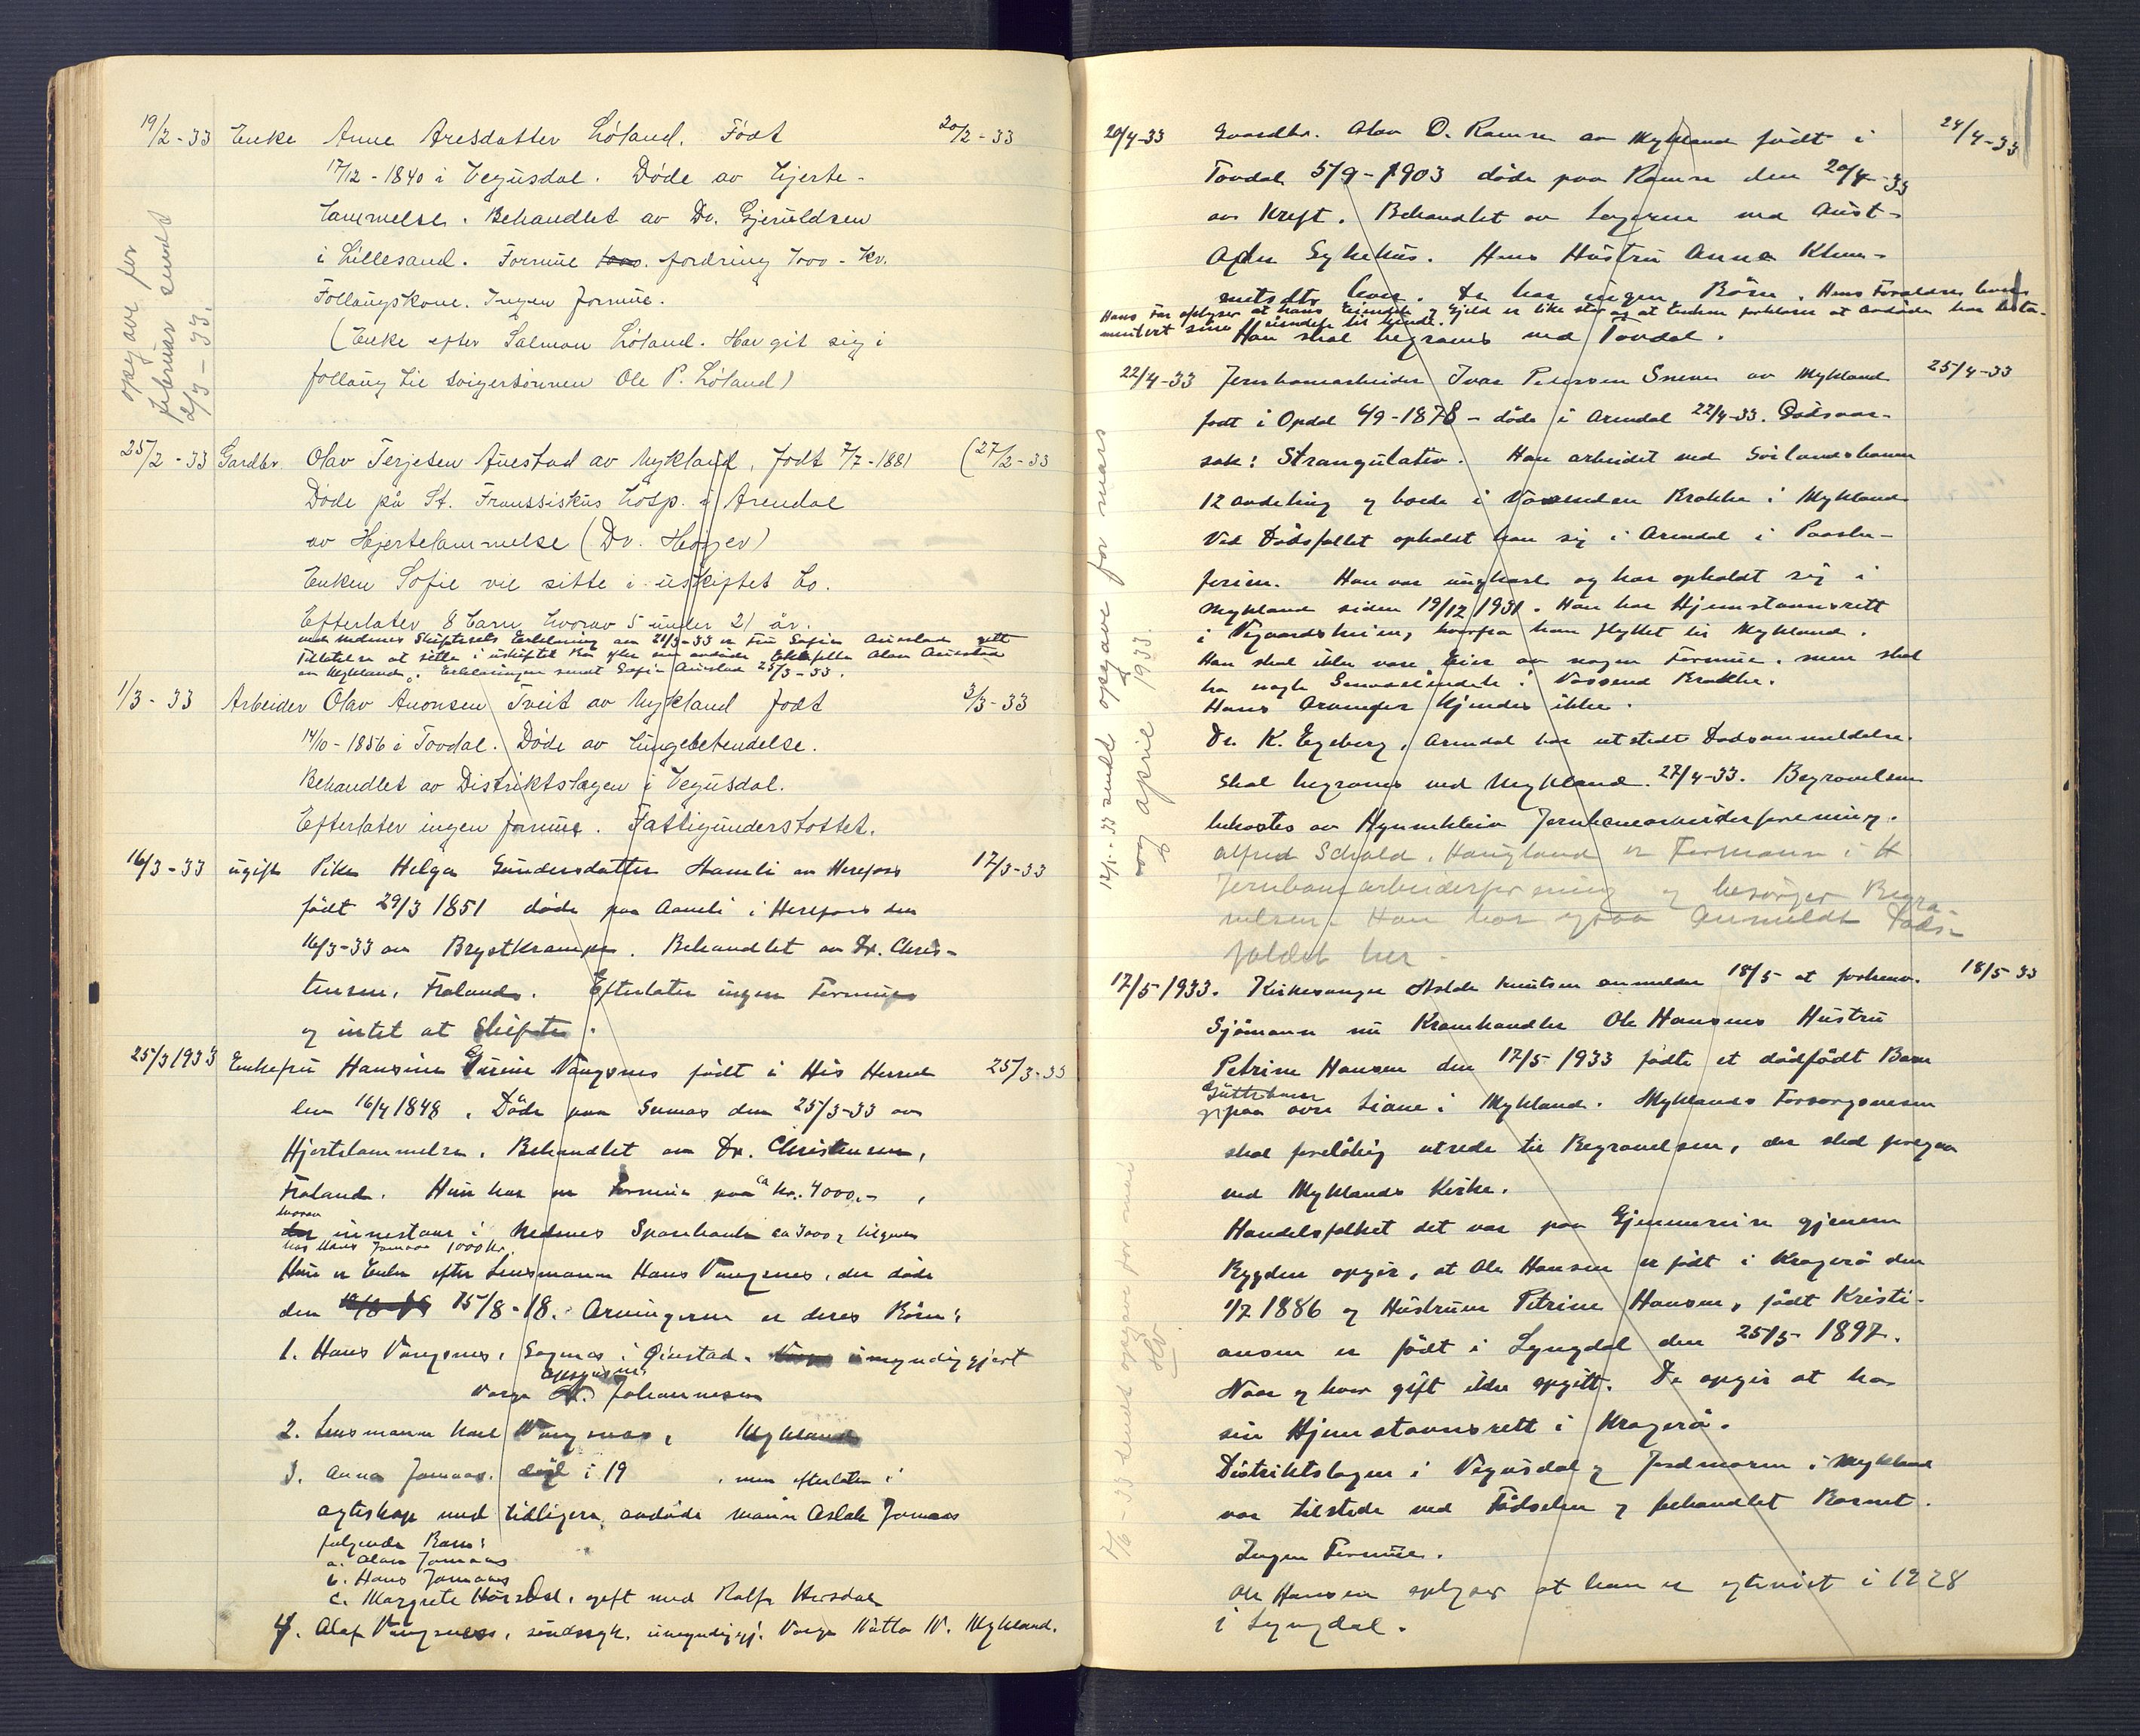 19/2-33 Enke Anne Aresdatter Løland. Født 20/2-33
17/12-1840 i Vegusdal. Døde av hjerte-
lammelse. Behandlet av Dr. Gjeruldsen
i Lillesand. Formue fordring 1000- Kr.
Follaugskone. Ingen formue.
(Enke efter Salmon Løland. Har git sig i
follaug til svigersønnen Ole P. Løland)
opgave for
februar sendt
2/3-33.
25/2-33 Gardbr. Olav Terjesen Auestad av Mykland, født 7/7-1881 (27/2-33
Døde på St. Franssiskus hosp. i Arendal
av Hjertelammelse (Dr. Høyer)
Enken Sofie vil sitte i uskiftet bo.
Efterlater 8 barn hvorav 5 under 21 år.
ved Nedenes Skifteretts Erklæring av 21/3-33 er Fru Sofie Auestad gitt
Tillatelse at sitte i uskiftet Bo efter sin avdøde Ektefelle Olav Auestad
av Mykland. Erklæringen sendt Sofie Auestad 25/3-33.
1/3-33 Arbeider Olav Anonsen Tveit av Mykland født 3/3-33
14/10-1856 i Tovdal. Døde av lungebetendelse.
Behandlet av Distriktslægen i Vegusdal.
Efterlater ingen formue. Fattigunderstøttet.
16/3-33 ugift Pike Helga Gundersdatter Hamli av Herefoss 17/3-33
født 29/3 1851 døde paa Aamli i Herefoss den
16/3-33 av Brystkrampe. Behandlet av Dr. Chris-
tensen, Froland. Efterlater ingen Formue
og intet at Skifte.
25/3 1933 Enkefru Hansine Gurine Vangsnes født i His Herred 25/3-33
den 16/4 1848. Døde paa den 25/3-33 av
Hjertelammelse. Behandlet av Dr. Christensen,
Froland. Hun har en Formue paa ca Kr. 4000.-,
hvorav
innestaar i Nedenes Sparebank ca 3000 og
hos Hans Jomaas 1000 Kr.
Hun er Enke efter Lensmann Hans Vangsnes, der døde
den 15/8-18. Arvingerne er deres Börn:
1. Hans Vangsnes, i Øiestad. umyndiggjort
Verge Johannesen
2. Lensmann Karl Vangsnes, Mykland
3. Anna Jomaas. död i 19 , men efterlater i
egteskap med tidligere avdöde mann Aslak Jomaas
følgende Barn:
a. Olav Jomaas
b. Hans Jomaas
c. Margrete gift med Rolf
4. Olaf Vangsnes, sindssyk, umyndiggj. Verge N. Mykland.
20/4-33 Gaardbr. Olav O. Ramse av Mykland født i 24/4-33
Tovdal 5/9-1903 döde paa Ramse den 20/4-33
av Kreft. Behandlet av Lægerne ved Aust-
Agder Sykehus. Hans Hustru Anna Klem-
metsdtr lever. De har ingen Börn. Hans Foreldre lever
Hans Far oplyser at hans Eiendele og Gjeld er like stor og at Enken forklarer at avdøde har testa-
mentert sine eiendele til hende.
Han skal begraves ved Tovdal.
22/4-33 Jernbanearbeider Ivar Petersen Sneve av Mykland 25/4-33
født i Opdal 6/9-1878 - döde i Arendal 22/4-33. Dødsaar-
sak: Strangulatio. Han arbeidet ved Sørlandsbanen
12 avdeling og boede i Vassenden Brakke i Mykland
Ved Dödsfallet opholdt han sig i Arendal i Paaske-
ferien. Han var ungkarl og har opholdt sig i
Mykland siden 19/12 1931. Han har Hjemstavnsrett
i Vegaardsheien, hvorfra han flyttet til Mykland.
Han skal ikke være Eier av nogen Formue, men skal
ha nogle i Vassend Brakke.
Hans Arvinger kjendes ikke.
Dr. K. Egeberg, Arendal har utstedt Dødsanmeldelse.
Skal begraves ved Mykland 27/4-33. Begravelsen
bekostes av Hynnekleiv Jernbanearbeiderforening.
Alfred Schold, Haugland er Formann i H
Jernbanearbeiderforening og besørger Begra-
velsen. Han har ogsaa Anmeldt Døds-
faldet her.
12/5-33 sendt opgave for mars
og april 1933.
17/5 1933. Kirkesanger Halde Knutsen anmelder 18/5 at forhenv. 18/5-33
Sjömann nu Kramhandler Ole Hansens Hustru
Petrine Hansen den 17/5 1933 födte et dödfödt Barn
Guttebarn
paa øvre Liane i Mykland. Myklands Forsorgsvesen
skal foreløbig utrede til Begravelsen, der skal foregaa
ved Myklands Kirke.
Handelsfolket det var paa Gjennemreise gjennem
Bygden opgir, at Ole Hansen er født i Kragerø den
1/7 1886 og Hustruen Petrine Hansen, født Kristi-
ansen er født i Lyngdal den 25/5 1897.
Naar og hvor gift ikke opgitt. De opgir at ha
sin Hjemstavnsrett i Kragerø.
Distriktslægen i Vegusdal og Jordmoren i Mykland
var tilstede ved Fødselen og behandlet Barnet.
Ingen Formue.
Ole Hansen oplyser at han er egteviet i 1928
i Lyngdal.
7/6-33 sendt opgave for mai